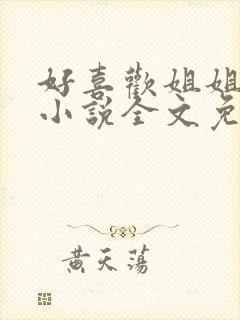 好喜歡姐姐
小說全文免
黃天蕩